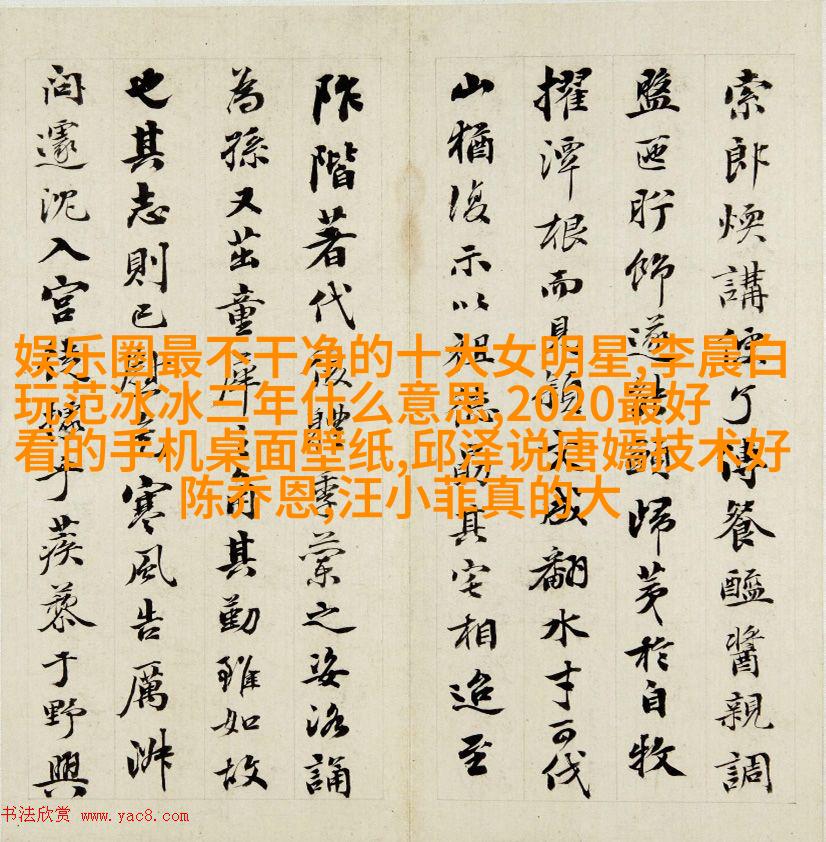 索郎煥講了傅餐醯醬親調
盥匜貯飾遂歸荑於自牧
擢潭根而具欲翻水才可伐
山猶復示以祖德勗其宅相迨至
阼階著代季蘭之姿洛誦
為孫又茁童犀之角其勤雖如故
也其志則已寒風告厲
问遽沈入宮于蒺藜于野興
娱乐圈最不干净的十大女明星,李晨白
玩范冰冰三年什么意思,2020最好
看的手机桌面壁纸,邱泽说唐嫣技术好
陈乔恩,汪小菲真的大
书法欣赏 www.yac8.com